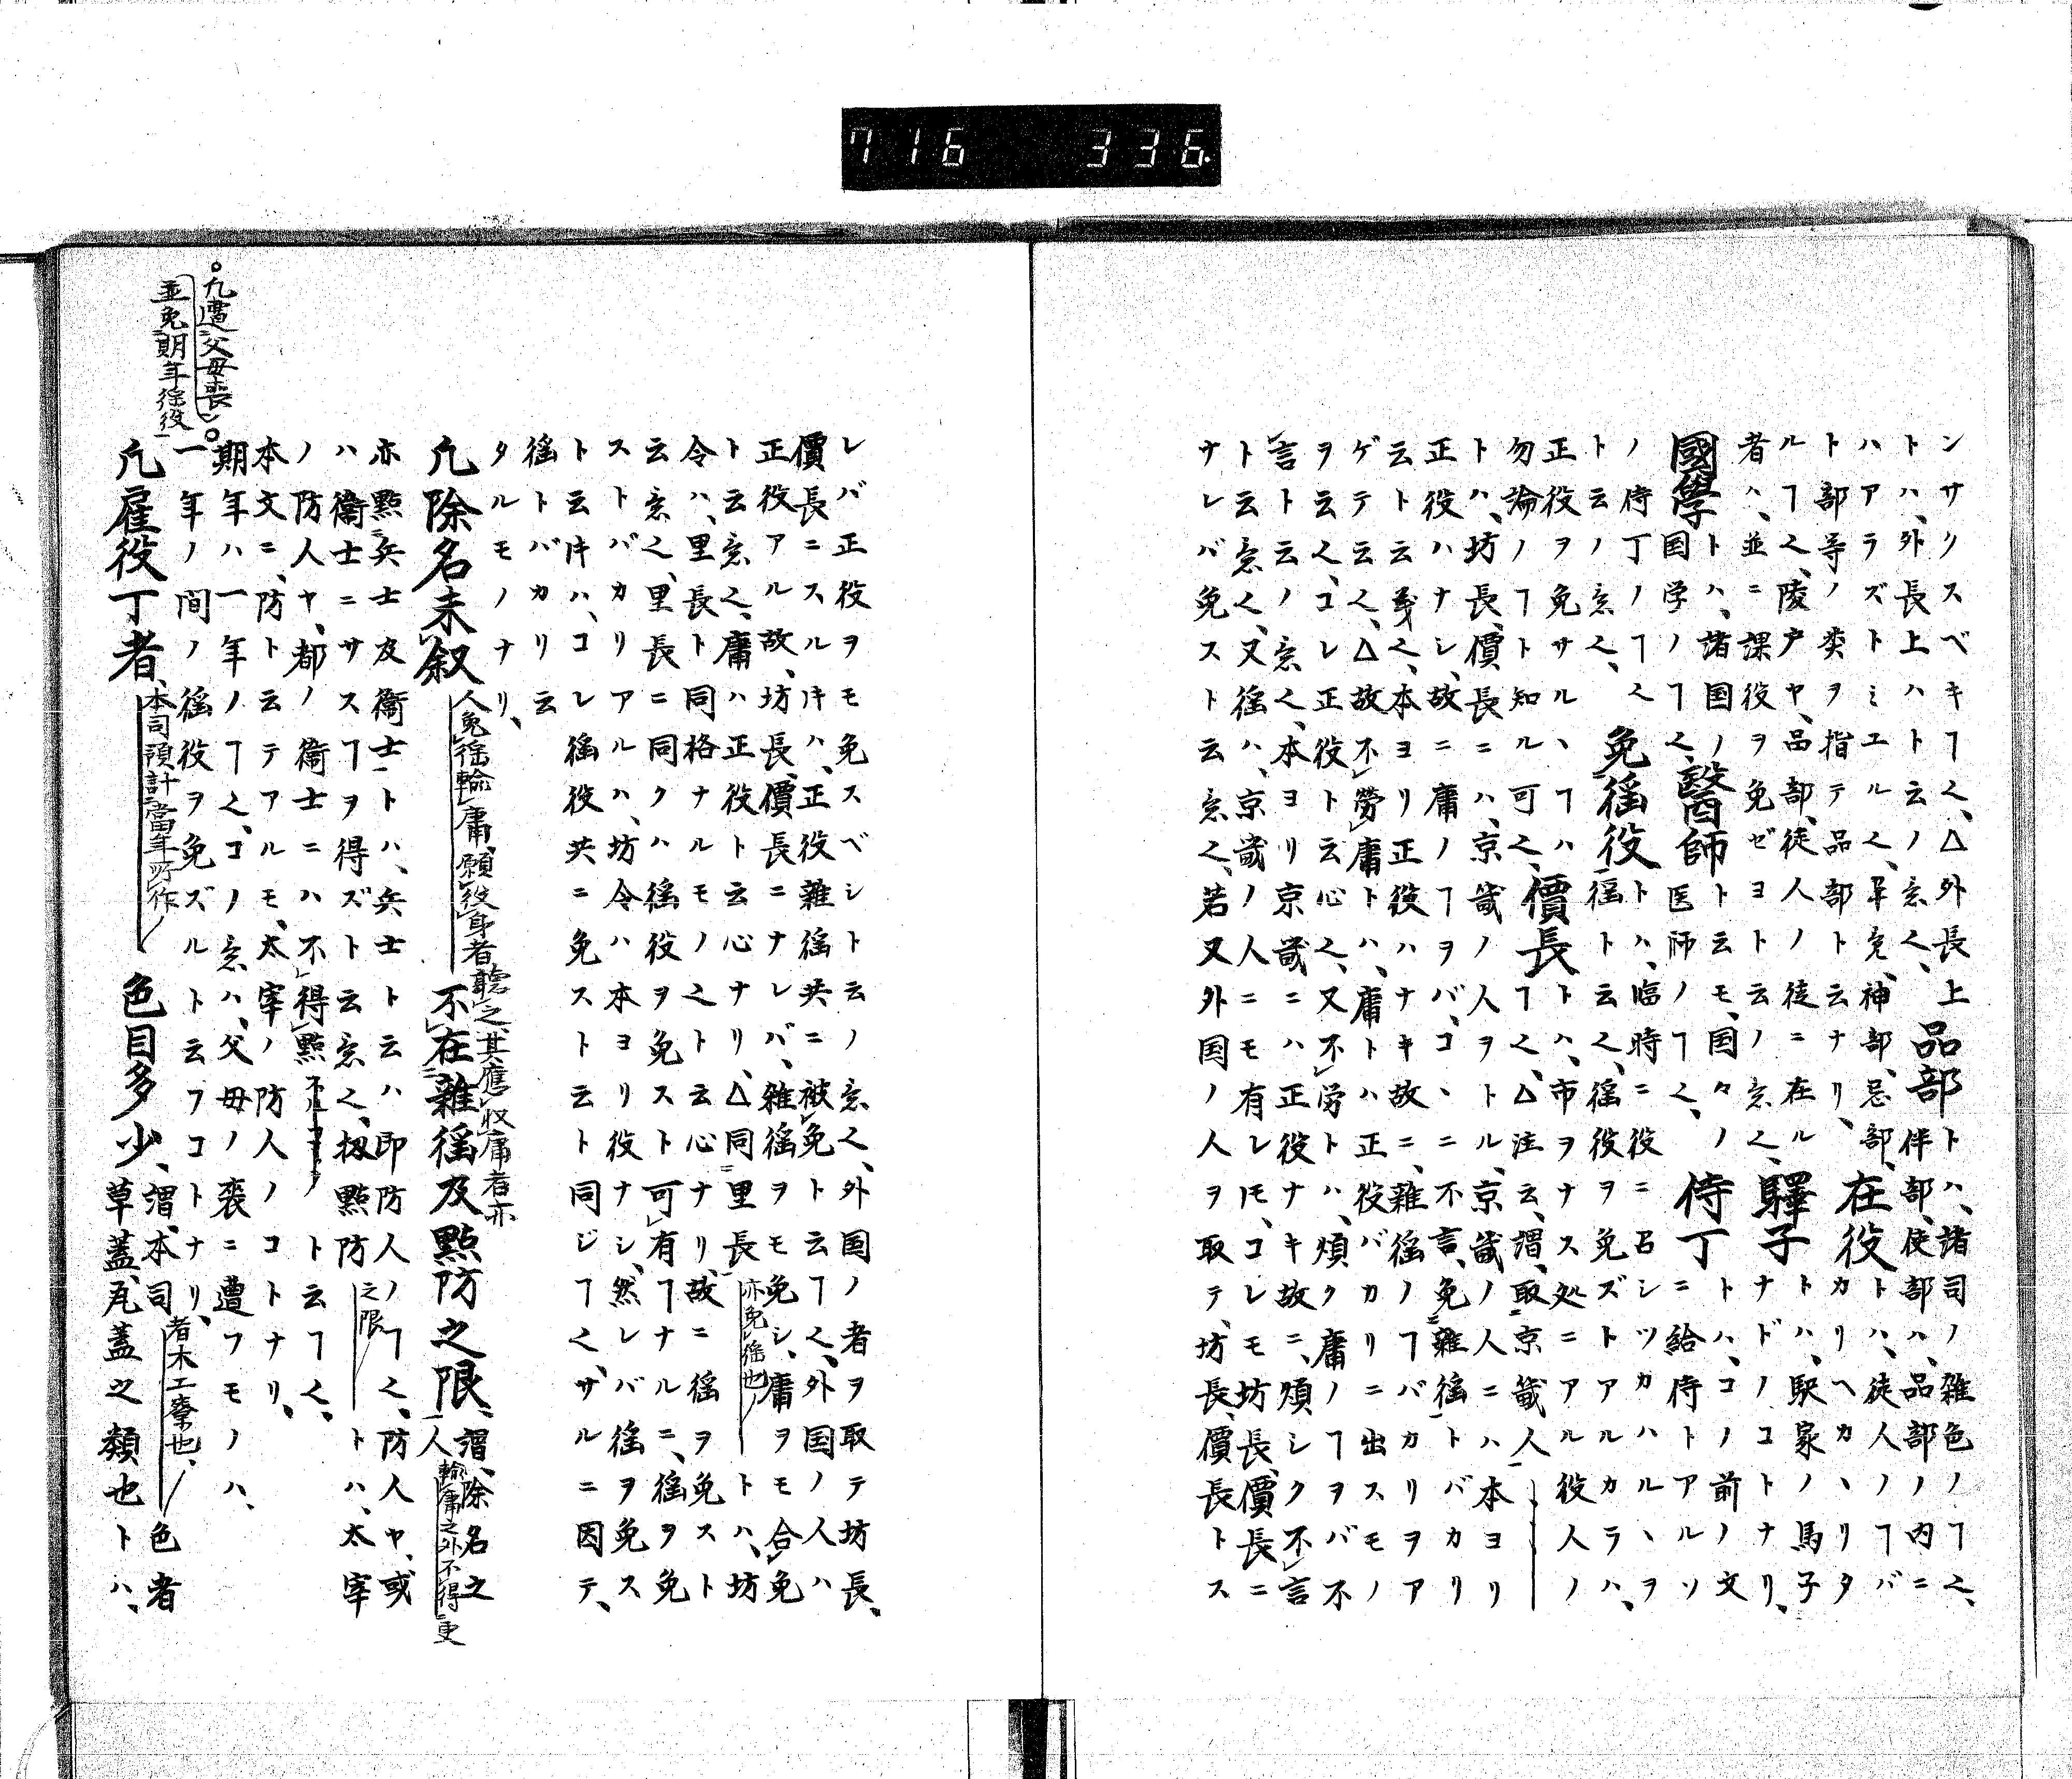 716 336.
ンサクスベキヿ〱、△外長上品部トハ、諸司ノ雑色ノヿ〱、
トハ、外長上ハト云ノ意〱、伴部、使部ハ、品部ノ内ニ
ハアラズトミエル〱、卑官、神部、忌部、在役トハ、徒人ノヿバ
ト部等ノ类ヲ指テ品部ト云ナリ、カリ、ヘカヽリタ
ルヿ〱、陵戸ヤ、品部、徒人ノ徒ニ在ル驛子トハ、駅家ノ馬子
者ハ、並ニ課役ヲ免ゼヨト云ノ意〱、ナドノコトナリ、
國學トハ、諸国ノ醫師ト云モ、国々ノ侍丁トハ、コノ前ノ文
国学ノヿ〱、医師ノヿ〱、ニ給侍トアルソ
ノ侍丁ノヿ〱免徭役トハ、臨時ニ役ニ召シツカハルヽヲ
ト云ノ意〱、徭ト云〱、徭役ヲ免ズトアルカラハ、
正役ヲ免サルヽヿハ價長トハ、市ヲナス処ニアル役人ノ
勿論ノヿト知ル可〱、ヿ〱、△注云、謂、取京畿人
トハ、坊長、價長ニハ、京畿ノ人ヲトル、京畿ノ人ニハ本ヨリ
正役ハナシ、故ニ庸ノヿヲバ、コヽニ不言、免雜徭トバカリ
云ト云義〱、本ヨリ正役ハナキ故ニ、雜徭ノヿバカリヲア
ゲテ云〱、△故不勞庸トハ、庸トハ正役バカリニ出スモノ
ヲ云〱、コレ正役ト云心〱、又不労トハ、煩ク庸ノヿヲバ不
言ト云ノ意〱、本ヨリ京畿ニハ正役ナキ故ニ、煩シク不言
ト云意〱、又徭ハ、京畿ノ人ニモ有レドモ、コレモ坊長、價長ニ
ナレバ免スト云意〱、若又外国ノ人ヲ取テ坊長、價長トス
レバ正役ヲモ免スベシト云ノ意〱、外国ノ者ヲ取テ坊長、
價長ニスルキハ、正役雜徭共ニ被免ト云ヿ〱、外国ノ人ハ
正役アル故、坊長、價長ニナレバ、雑徭ヲモ免シ、庸ヲモ合免
ト云意〱、庸ハ正役ト云心ナリ、△同里長亦免徭也トハ、坊
令ハ、里長ト同格ナルモノ之ト云心ナリ、故ニ徭ヲ免スト
云意〱、里長ニ同クハ徭役ヲ免スト可有ヿナルニ、徭ヲ免
ストバカリアルハ、坊令ハ本ヨリ役ナシ、然レバ徭ヲ免ス
ト云件ハ、コレ徭役共ニ免スト云ト同ジヿ〱、サルニ因テ、
徭トバカリ云
タルモノナリ、
凡除名未叙人免徭輸庸、願役身者聽之、其應收庸者亦不在雜徭及點防之限、謂、除名之人、輸庸之外不得更
亦點兵士及衛士トハ、兵士ト云ハ即防人ノヿ〱、防人ヤ、或
ハ衛士ニサスヿヲ得ズト云意〱、扨點防之限トハ、太宰
ノ防人ヤ、都ノ衛士ニハ不得點ノト云ヿ〱、
本文ニ、防ト云テアルモ、太宰ノ防人ノコトナリ、
。凡遭父母喪。
並免期年徭役
期年ハ一年ノヿ〱、コノ意ハ、父母ノ喪ニ遭フモノハ、
一年ノ間ノ徭役ヲ免ズルト云フコトナリ、
凡雇役丁者、本司預計當年所作色目多少、謂、本司者木工寮也、色者草蓋、瓦蓋之類也トハ、